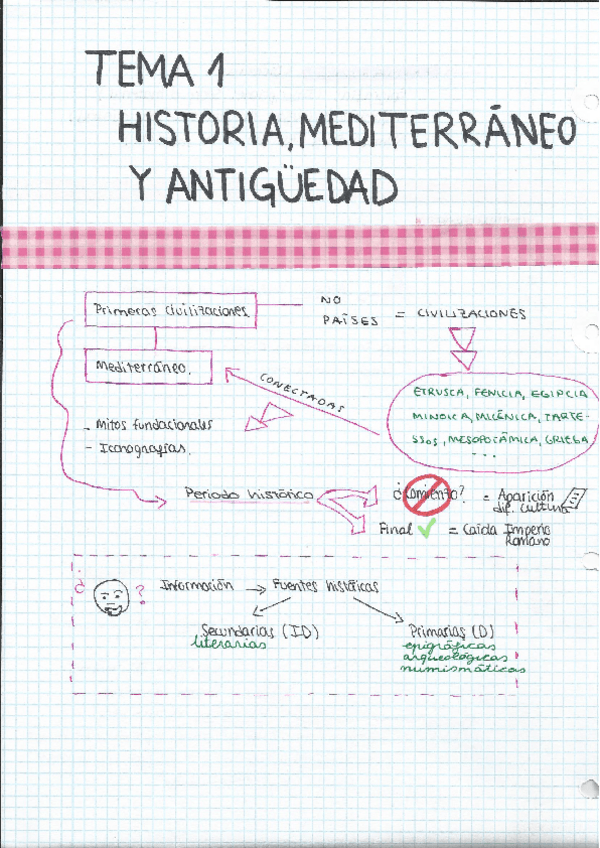 TEMA 1
HISTORIA, MEDITERRÁNEO
Y ANTIGÜEDAD
Primeras civilizaciones
NO
PAÍSES = CIVILIZACIONES
Mediterráneo.
CONECTADAS
ETRUSCA, FENICIA, EGIPCIA
MINOICA, MICÉNICA, TARTE-
SSOS, MESOPOTÁMICA, GRIEGA
...
- Mitos fundacionales
- Iconografías.
Periodo histórico
¿Comienzo? = Aparición
dif. culturas
Final ✓ = Caída Imperio
Romano
¿ ? Información → Fuentes históricas
Secundarias (ID)
literarias
Primarias (D)
epigráficas
arqueológicas
numismáticas